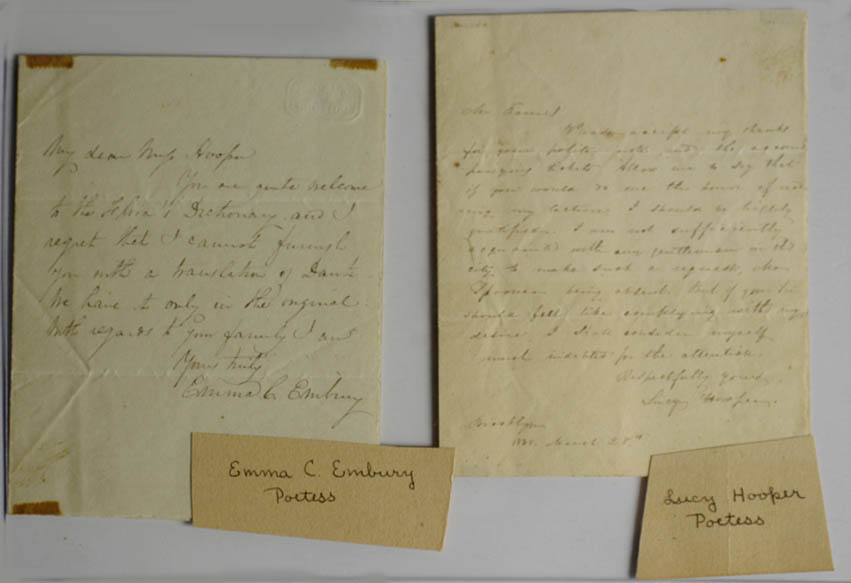 My dear Miss Hooper
You are quite welcome
to the Dictionary and I
regret that I cannot furnish
you with a translation of Dante.
We have it only in the original.
With regards to your family I am
Yours truly
Emma C. Embury
Emma C. Embury
Poetess
accept my thanks
for your polite note and the accom
panying tickets. Allow me to say that
if you would do me the honor of
my lecture, I should be highly
gratified. I am not sufficiently
acquainted with any gentleman in the
city, to make such a request,
being absent, but if you
should feel like complying with my
desire, I shall consider myself
much indebted for the attention.
Respectfully yours,
Lucy Hooper.
Brooklyn
March 28th
Lucy Hooper
Poetess